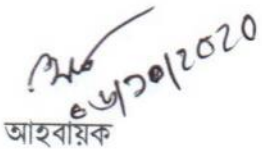 ০৬/১০/২০২০
আহবায়ক